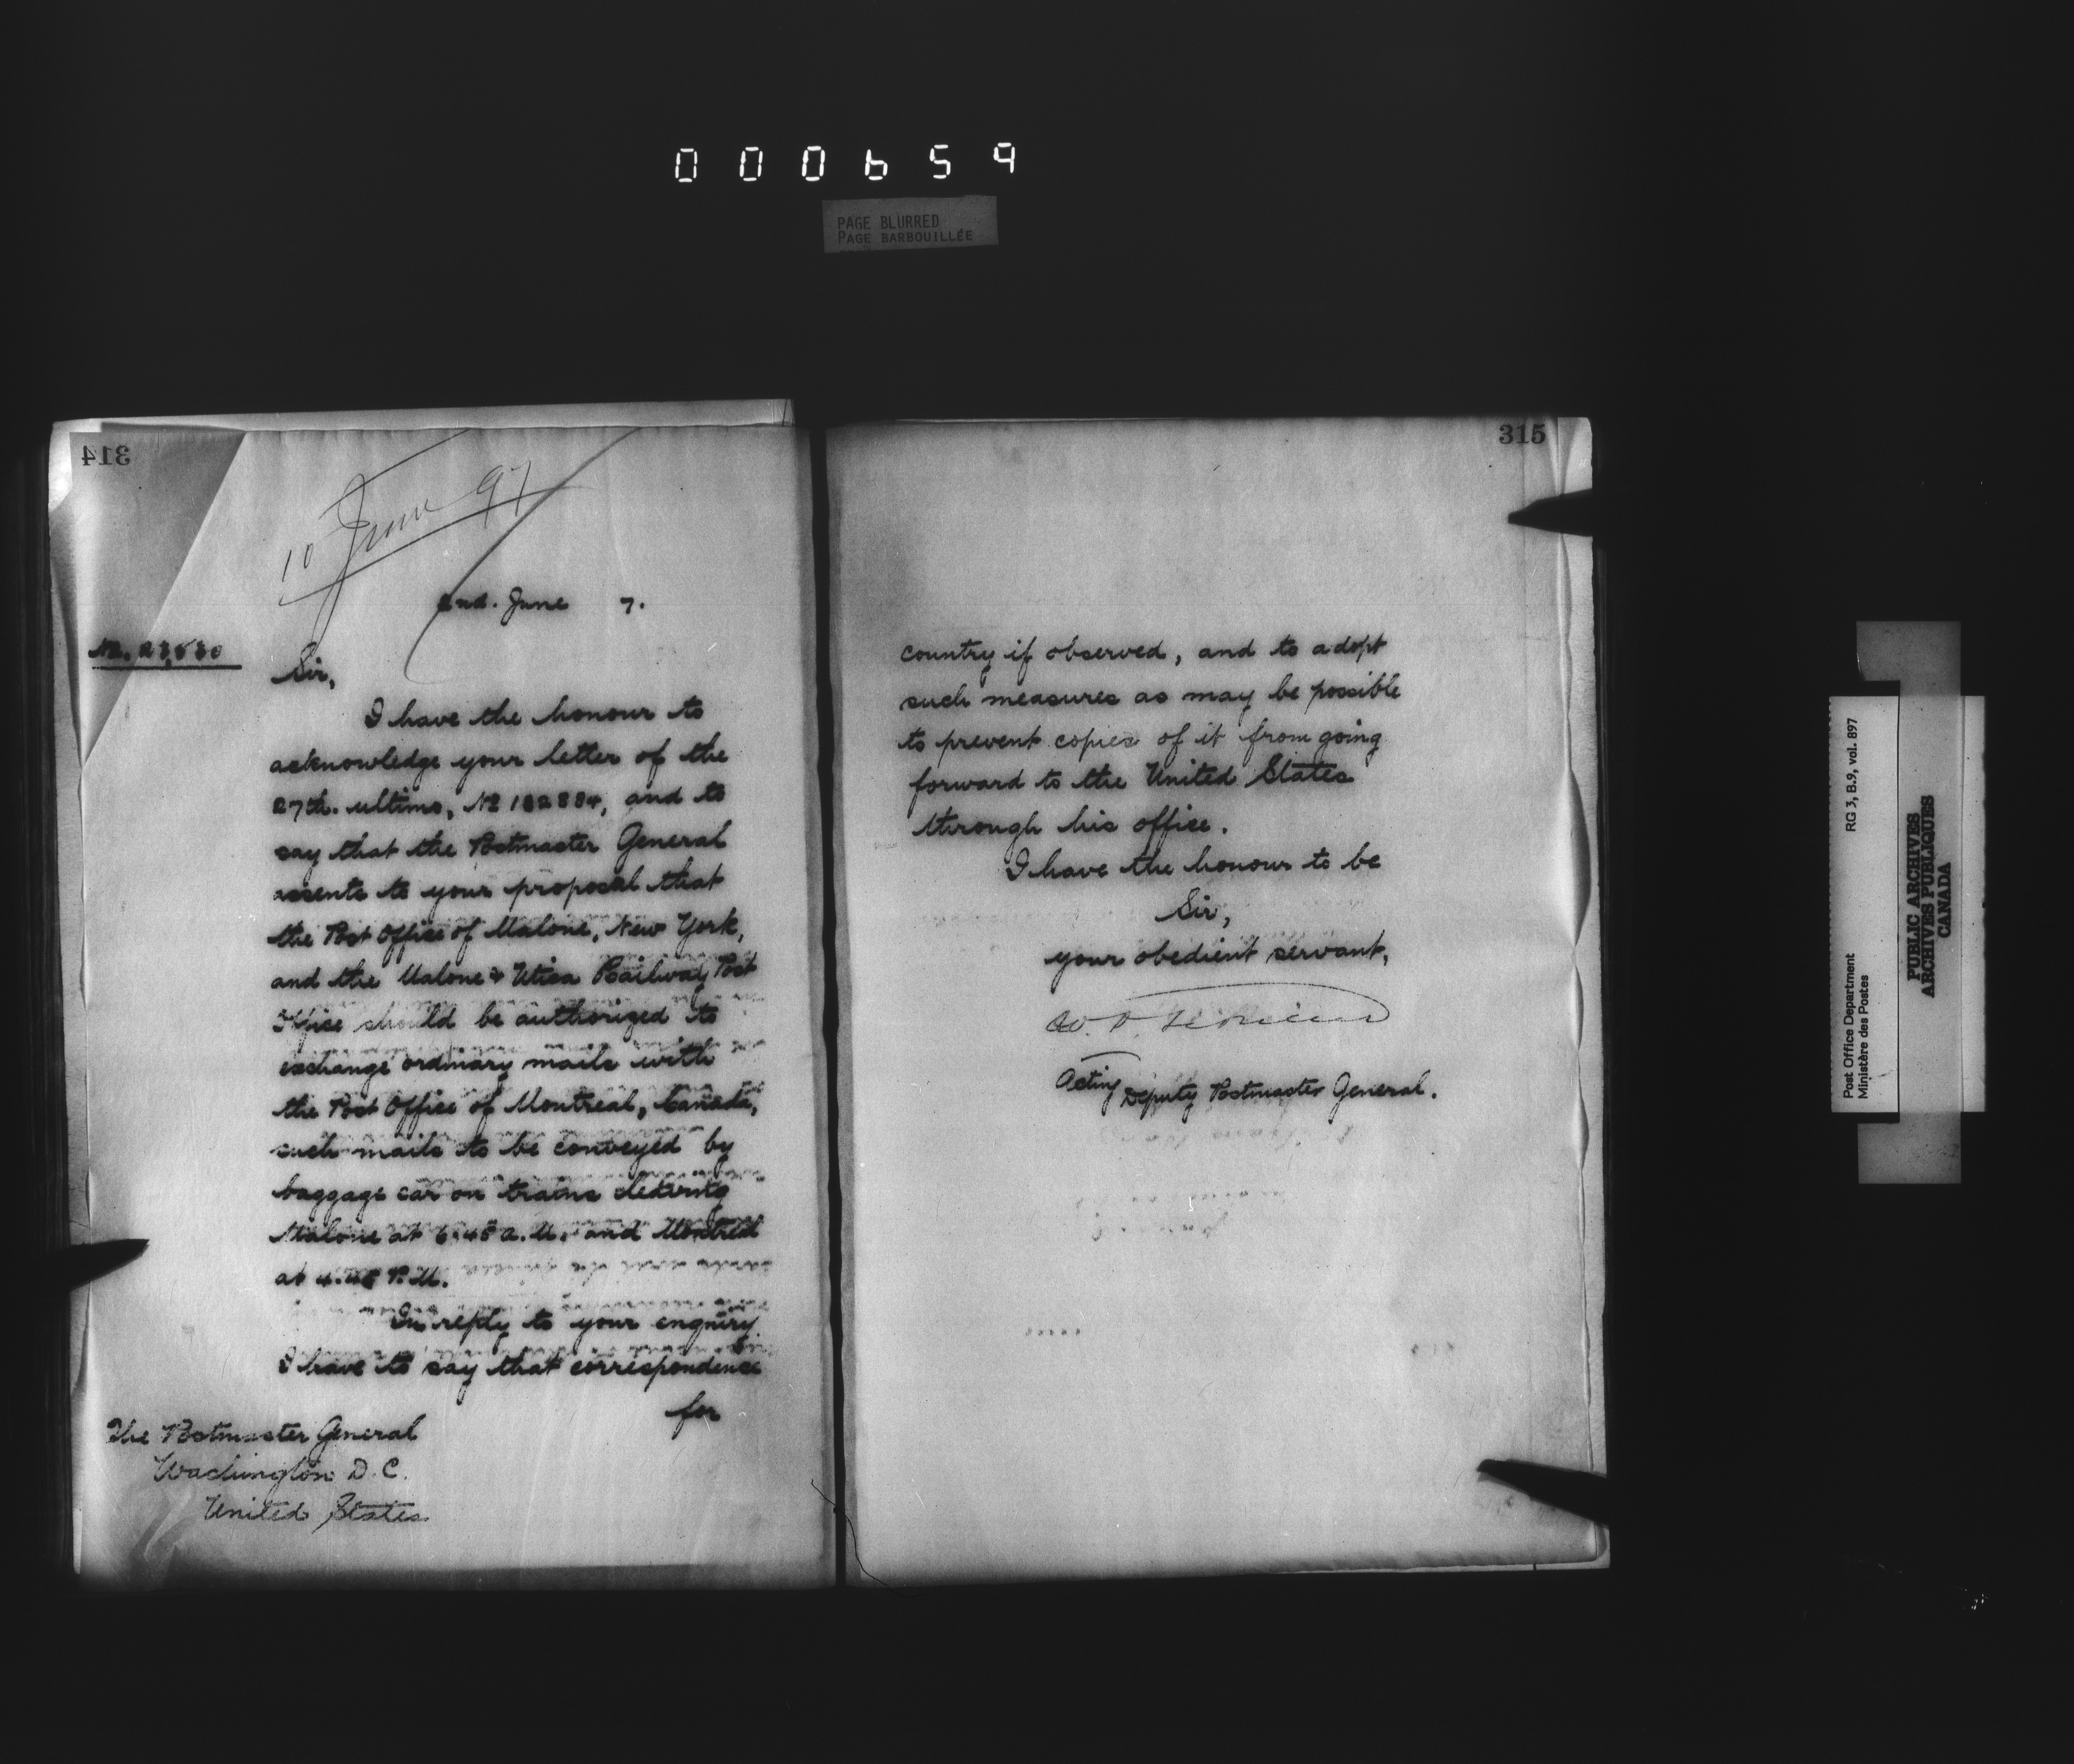 000659
PAGE BLURRED
PAGE BARBOUILLÉE
314
10 June 97
2nd. June 7.
No. 23,530
Sir,
I have the honour to
acknowledge your letter of the
27th. ultimo, No 182884, and to
say that the Postmaster General
assents to your proposal that
the Post Office of Malone, New York,
and the Malone & Utica Railway Post
Office should be authorized to
exchange ordinary mails with
the Post Office of Montreal, Canada,
such mails to be conveyed by
baggage car on trains leaving
Malone at 6.45 a.M. and Montreal
at 4.45 P.M.
In reply to your enquiry
I have to say that correspondence
for
The Postmaster General
Washington D.C.
United States
315
country if observed, and to adopt
such measures as may be possible
to prevent copies of it from going
forward to the United States
through his office.
I have the honour to be
Sir,
your obedient servant,
Acting Deputy Postmaster General.
Post Office Department RG 3, B.9, vol. 897
Ministère des Postes
PUBLIC ARCHIVES
ARCHIVES PUBLIQUES
CANADA